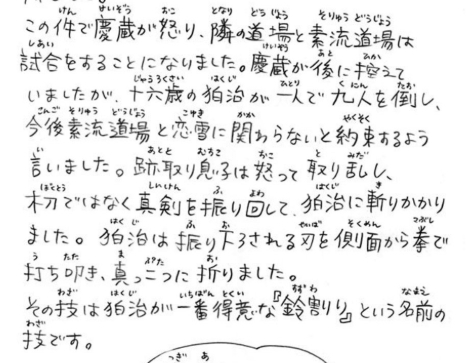 この件で慶蔵が怒り、隣の道場と素流道場は
試合をすることになりました。慶蔵が後に控えて
いましたが、十六歳の狛治が一人で九人を倒し、
今後素流道場と恋雪に関わらないと約束するよう
言いました。跡取り息子は怒って取り乱し、
木刀ではなく真剣を振り回して、狛治に斬りかかり
ました。狛治は振り下ろされる刃を側面から拳で
打ち叩き、真っ二つに折りました。
その技は狛治が一番得意な『鈴割り』という名前の
技です。
つぎ あ